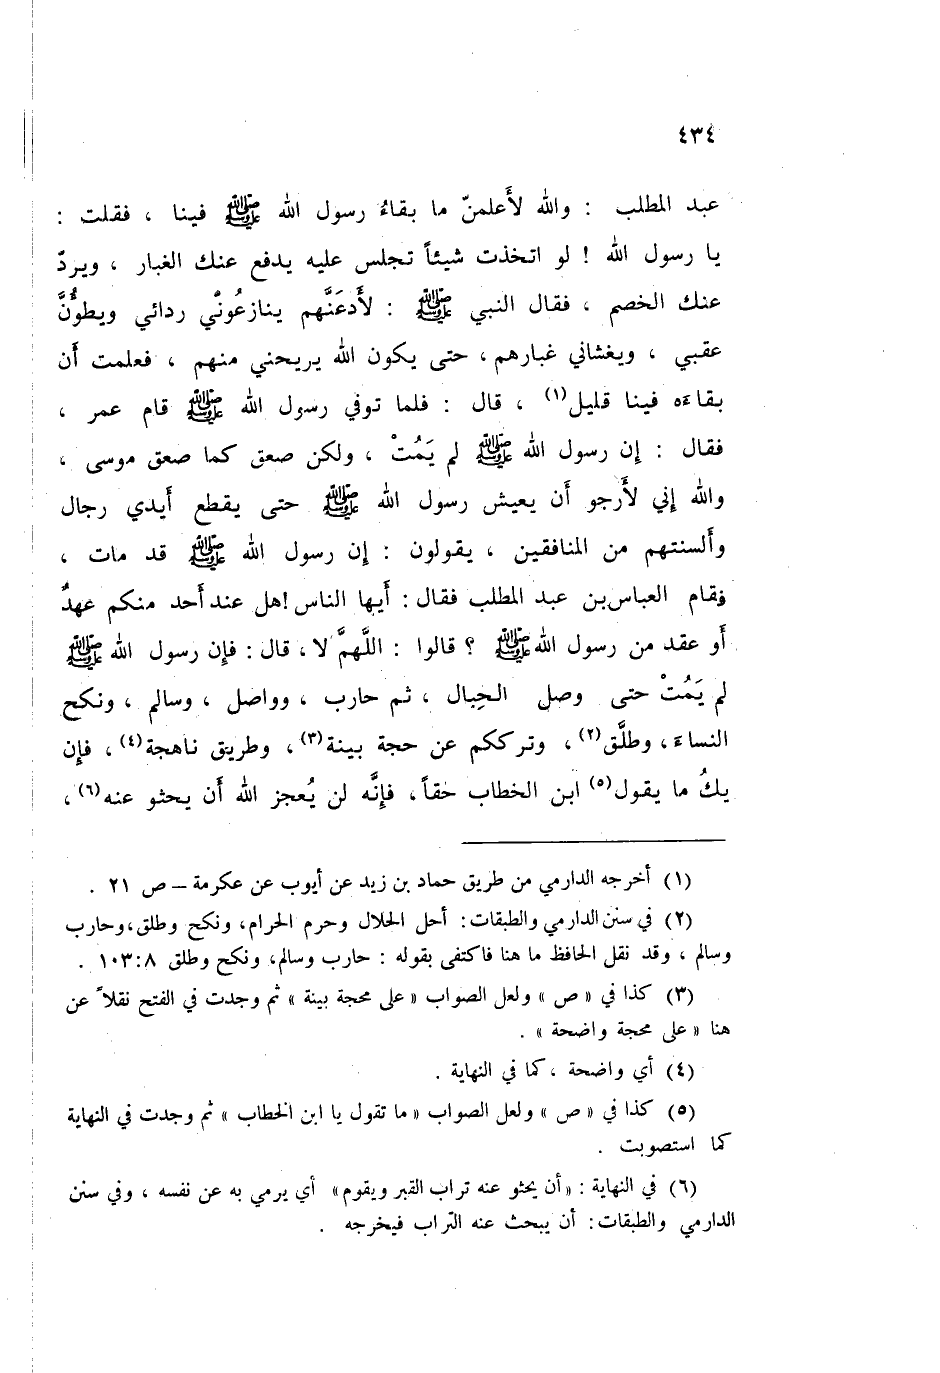 ٤٣٤
عبد المطلب : والله لأَعلمنّ ما بقاءُ رسول الله ﷺ فينا ، فقلت :
يا رسول الله ! لو اتخذت شيئاً تجلس عليه يدفع عنك الغبار ، ويردّ
عنك الخصم ، فقال النبي ﷺ : لأَدعَنَّهم ينازعُونْي ردائي ويطوُّنَّ
عقبي ، ويغشاني غبارهم ، حتى يكون الله يريحني منهم ، فعلمت أَن
بقاءه فينا قليل(١) ، قال : فلما توفي رسول الله ﷺ قام عمر ،
فقال : إن رسول الله ﷺ لم يَمُتْ ، ولكن صعق كما صعق موسى ،
والله إني لأَرجو أَن يعيش رسول الله ﷺ حتى يقطع أَيدي رجال
وأَلسنتهم من المنافقين ، يقولون : إن رسول الله ﷺ قد مات ،
فقام العباس بن عبد المطلب فقال : أَيها الناس ! هل عند أَحد منكم عهدٌ
أَو عقد من رسول الله ﷺ ؟ قالوا : اللَّهمَّ لا ، قال : فإن رسول الله ﷺ
لم يَمُتْ حتى وصل الحِبال ، ثم حارب ، وواصل ، وسالم ، ونكح
النساءَ ، وطلَّق(٢) ، وترككم عن حجة بينة(٣) ، وطريق ناهجة(٤) ، فإن
يكُ ما يقول(٥) ابن الخطاب حقاً ، فإنَّه لن يُعجز الله أَن يحثو عنه(٦) ،
(١) أخرجه الدارمي من طريق حماد بن زيد عن أيوب عن عكرمة – ص ٢١ .
(٢) في سنن الدارمي والطبقات : أحل الحلال وحرم الحرام ، ونكح وطلق ، وحارب
وسالم ، وقد نقل الحافظ ما هنا فاكتفى بقوله : حارب وسالم ، ونكح وطلق ٨ : ١٠٣ .
(٣) كذا في « ص » ولعل الصواب « على محجة بينة » ثم وجدت في الفتح نقلاً عن
هنا « على محجة واضحة » .
(٤) أي واضحة ، كما في النهاية .
(٥) كذا في « ص » ولعل الصواب « ما تقول يا ابن الخطاب » ثم وجدت في النهاية
كما استصوبت .
(٦) في النهاية : « أن يحثو عنه تراب القبر ويقوم » أي يرمي به عن نفسه ، وفي سنن
الدارمي والطبقات : أن يبحث عنه التراب فيخرجه .